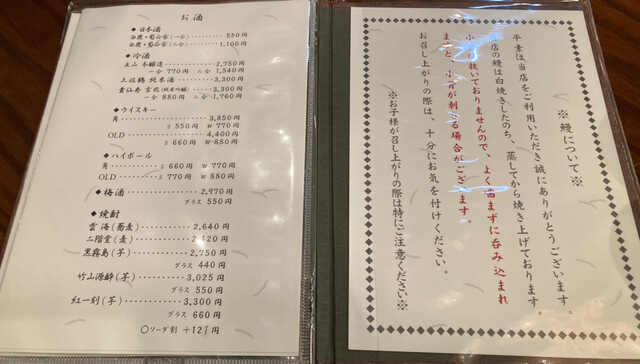 お酒
◆日本酒
白鹿・菊正宗(一合) ……… 550円
白鹿・菊正宗(二合) ……… 1,100円
◆冷酒
立山 本醸造 ……… 2,750円
一合 770円 二合 1,540円
土佐鶴 純米酒 ……… 3,300円
貴仙寿 吉兆(純米吟醸) ……… 3,300円
一合 880円 二合 1,760円
◆ウイスキー
角 ……… 3,850円
S 550円 W 770円
OLD ……… 4,400円
S 660円 W 880円
◆ハイボール
角 ……… S 660円 W 770円
OLD ……… S 770円 W 880円
◆梅酒 ……… 2,970円
グラス 550円
◆焼酎
雲海(蕎麦) ……… 2,640円
二階堂(麦) ……… 2,420円
黒霧島(芋) ……… 2,750円
グラス 440円
竹山源酔(芋) ……… 3,025円
グラス 550円
紅一刻(芋) ……… 3,300円
グラス 660円
○ソーダ割 +121円
※鰻について※
平素は当店をご利用いただき誠にありがとうございます。
当店の鰻は白焼きしたのち、蒸してから焼き上げております。
小骨は抜いておりませんので、よく噛まずに呑み込まれ
ますと、小骨が刺さる場合がございます。
お召し上がりの際は、十分にお気を付けください。
※お子様が召し上がりの際は特にご注意ください※